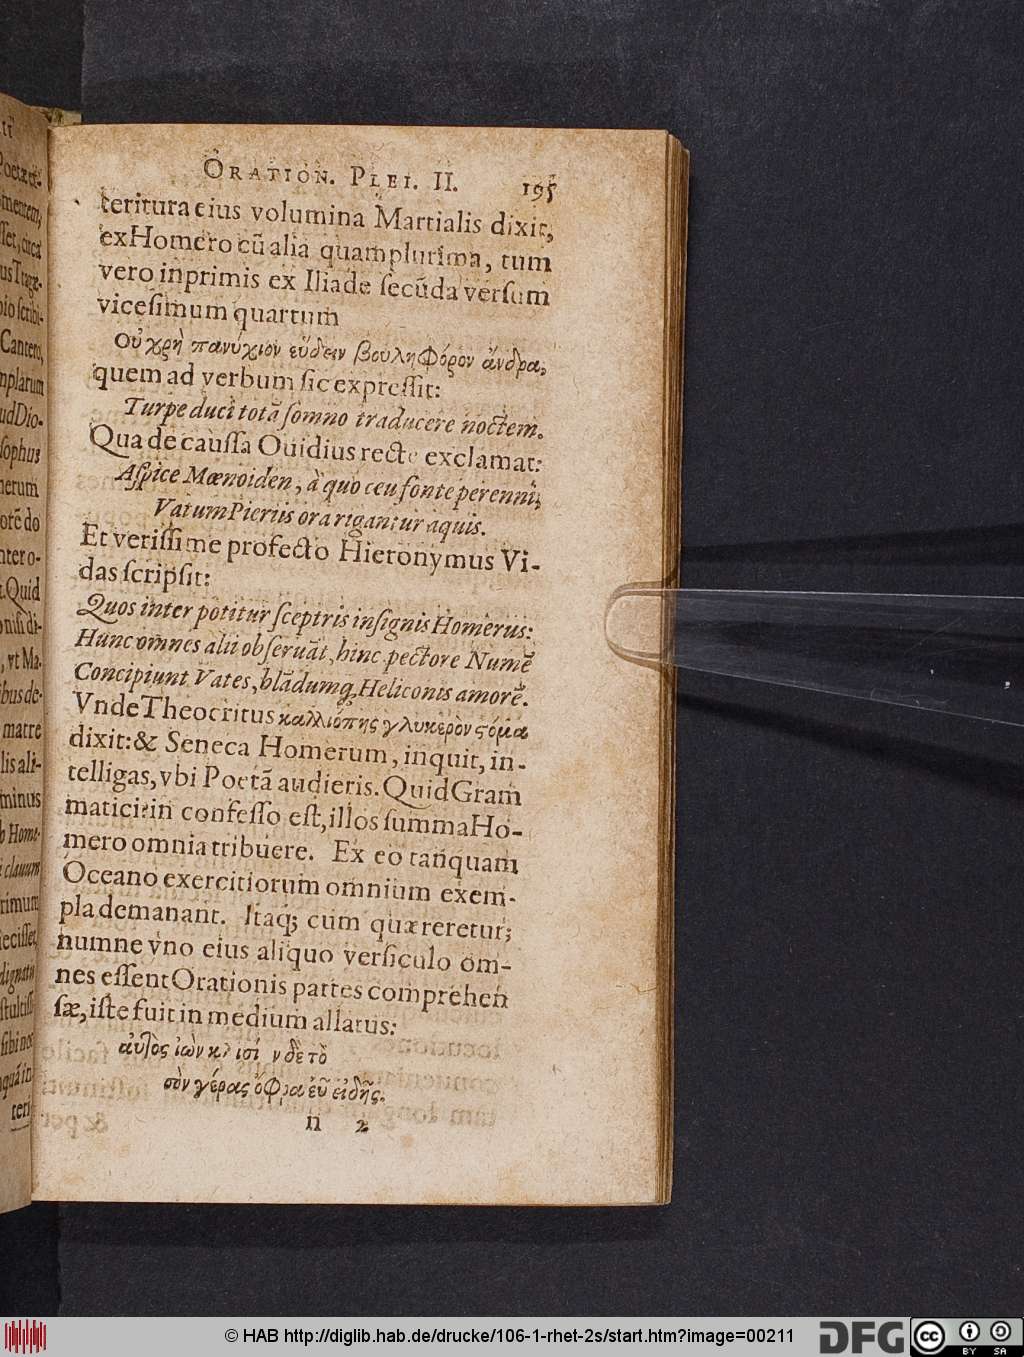 ORATION. PLEI. II. 195
teritura eius volumina Martialis dixit,
ex Homero cũ alia quamplurima, tum
vero inprimis ex Iliade secũda versum
vicesimum quartum
Οὐ χρὴ παννύχιον εὕδειν βουληφόρον ἄνδρα,
quem ad verbum sic expressit:
Turpe duci totã somno traducere noctem.
Qua de caussa Ouidius recte exclamat:
Aspice Mœnoiden, à quo ceu fonte perenni,
Vatum Pieriis ora rigantur aquis.
Et verissime profecto Hieronymus Vi-
das scripsit:
Quos inter potitur sceptris insignis Homerus:
Hunc omnes alii obseruãt, hinc pectore Numẽ
Concipiunt Vates, blãdumq; Heliconis amorẽ.
Vnde Theocritus καλλιόπης γλυκερὸν ϛόμα
dixit: & Seneca Homerum, inquit, in-
telligas, vbi Poetã audieris. Quid Gram
matici? in confesso est, illos summa Ho-
mero omnia tribuere. Ex eo tanquam
Oceano exercitiorum omnium exem-
pla demanant. Itaq; cum quæreretur,
numne vno eius aliquo versiculo om-
nes essent Orationis partes comprehen
sæ, iste fuit in medium allatus:
αὐτος ἰὼν κλισί νδε τὸ
σὸν γέρας ὄφρα ἐῦ εἰδῆς.
n 2
tt
Poetæ et-
mentem,
set, circa
us Tragœ-
pio scribi-
Cantero,
mplarum
ud Dio-
sophus
nerum
orẽ do
nter o-
t. Quid
, vt Ma-
bus de-
matre
lis ali-
minus
b Home-
i clauum
rimum
iecisset,
dignatu
stultiss
sibi nec
teri-
© HAB http://diglib.hab.de/drucke/106-1-rhet-2s/start.htm?image=00211
DFG
cc BY SA